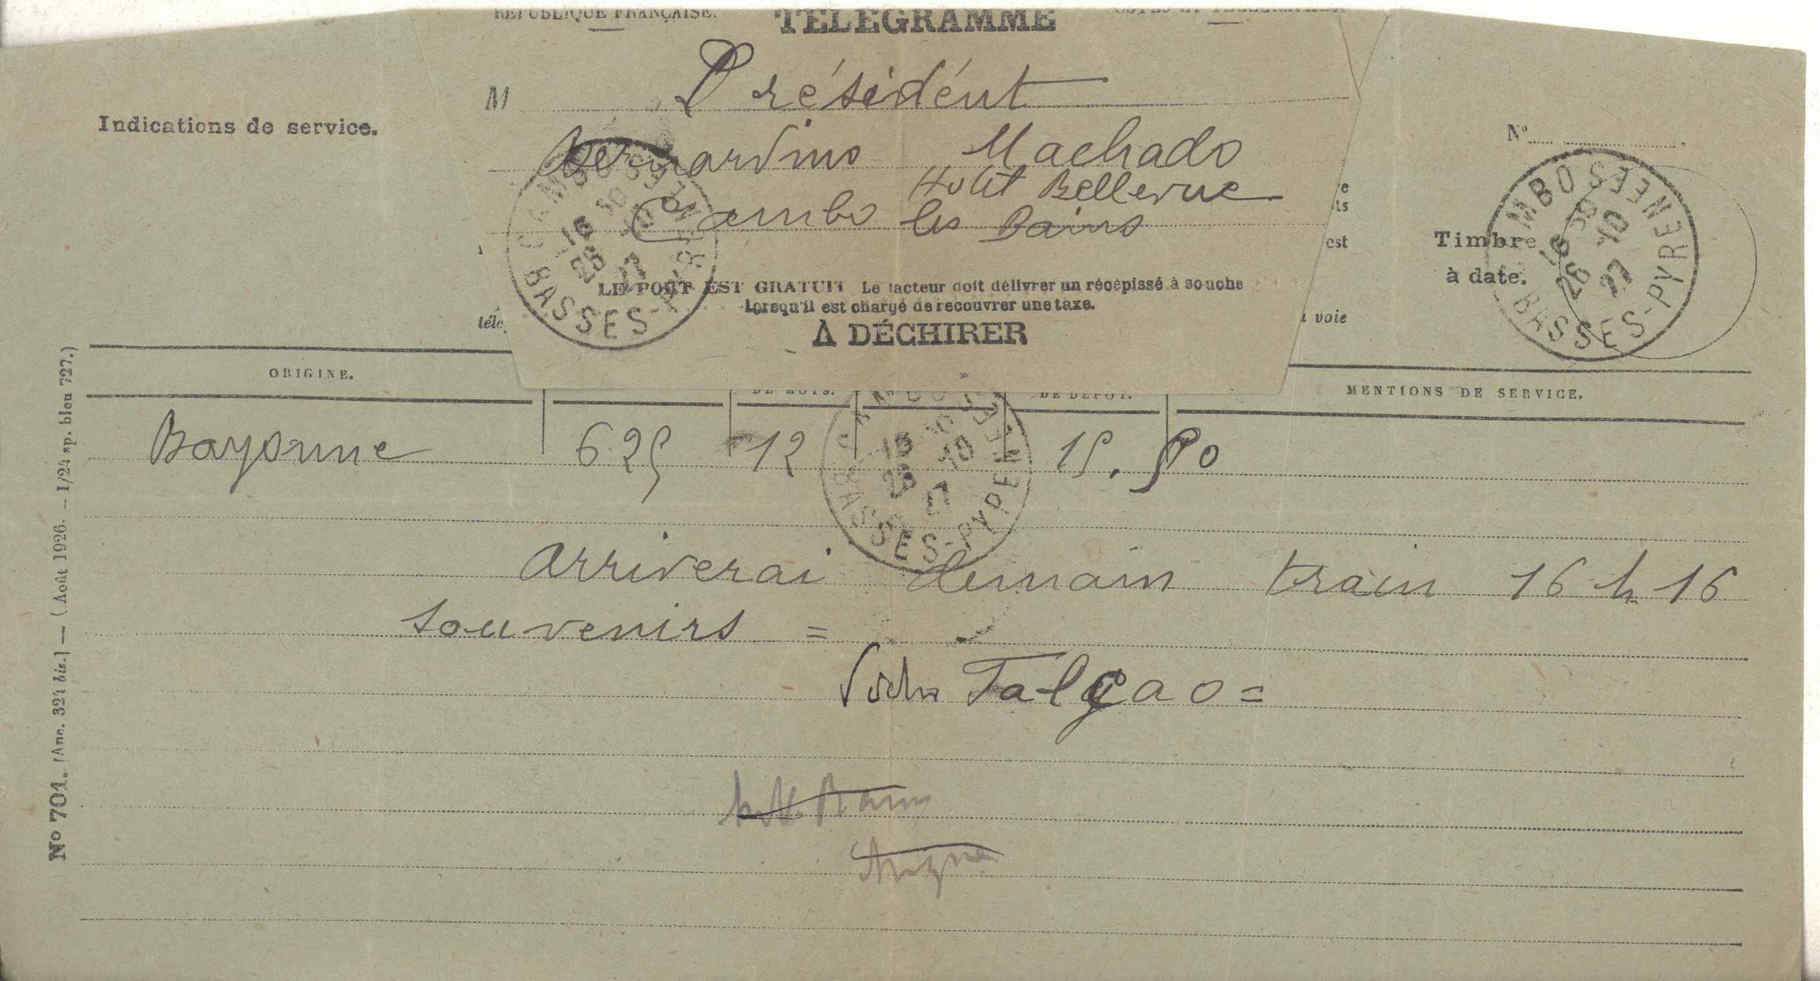 RÉPUBLIQUE FRANÇAISE.
TÉLÉGRAMME
M Présidént
Bernardino Machado
Hotel Bellevue
Cambo les Bains
LE PORT EST GRATUIT Le facteur doit délivrer un récépissé à souche
lorsqu'il est chargé de recouvrer une taxe.
À DÉCHIRER
Indications de service.
No
Timbre
à date.
CAMBO BASSES-PYRENEES
16 30
26 10
27
est
télé
voie
ORIGINE.
DE MOTS.
DE DÉPÔT.
MENTIONS DE SERVICE.
Bayonne 625 12 15.50
arriverai demain train 16 h 16
souvenirs =
Falçao =
No 701. (Ann. 324 bis.) — (Août 1926. — 1/24 sp. bleu 727.)